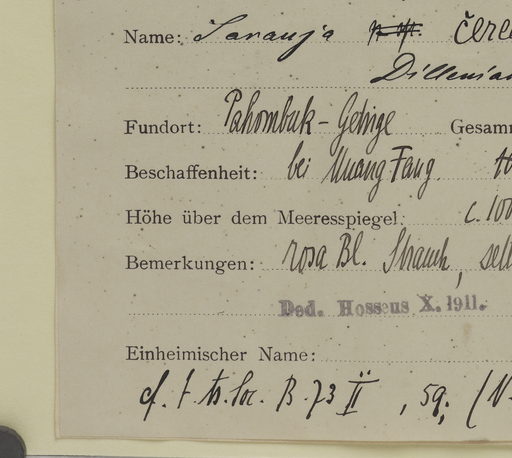 Name: Sarauja n. sp. čerea
Dillenian
Fundort: Pahombuk-Gebirge Gesamm
Beschaffenheit: bei Muang Fang.
Höhe über dem Meeresspiegel: c. 100
Bemerkungen: rosa Bl. Strauch, selt
Ded. Hosseus X. 1911.
Einheimischer Name:
cf. B. 73 II, 59;